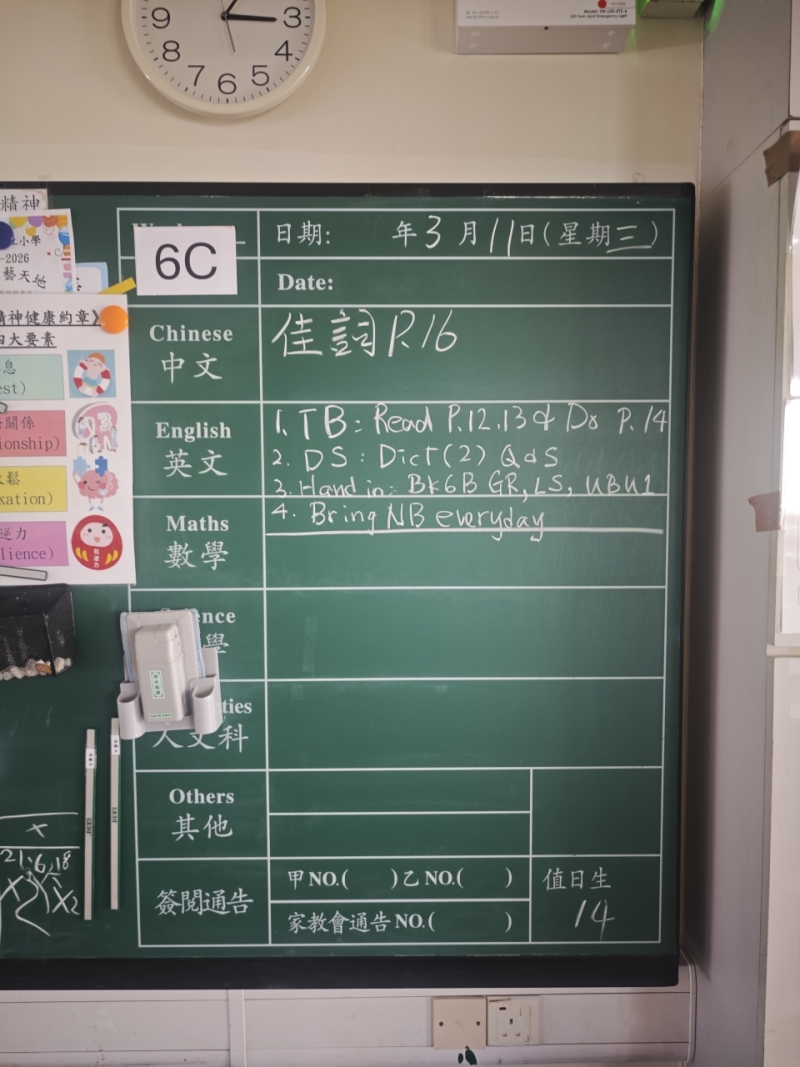 9
3
8
4
7
6
5
精神
小學
-2026
藝天地
6C
日期: 年 3 月 11 日 (星期三)
Date:
精神健康約章》
四大要素
息
est)
關係
ionship)
鬆
xation)
逆力
lience)
Chinese
中文
佳詞 P.16
English
英文
1. TB: Read P.12, 13 & Do P. 14
2. DS: Dict (2) Q & S
3. Hand in: BK6B GR, LS, UBU1
Maths
數學
4. Bring NB everyday
ence
學
ties
人文科
Others
其他
簽閱通告
甲 NO.( ) 乙 NO.( )
家教會通告 NO.( )
值日生
14
x
21, 6, 18